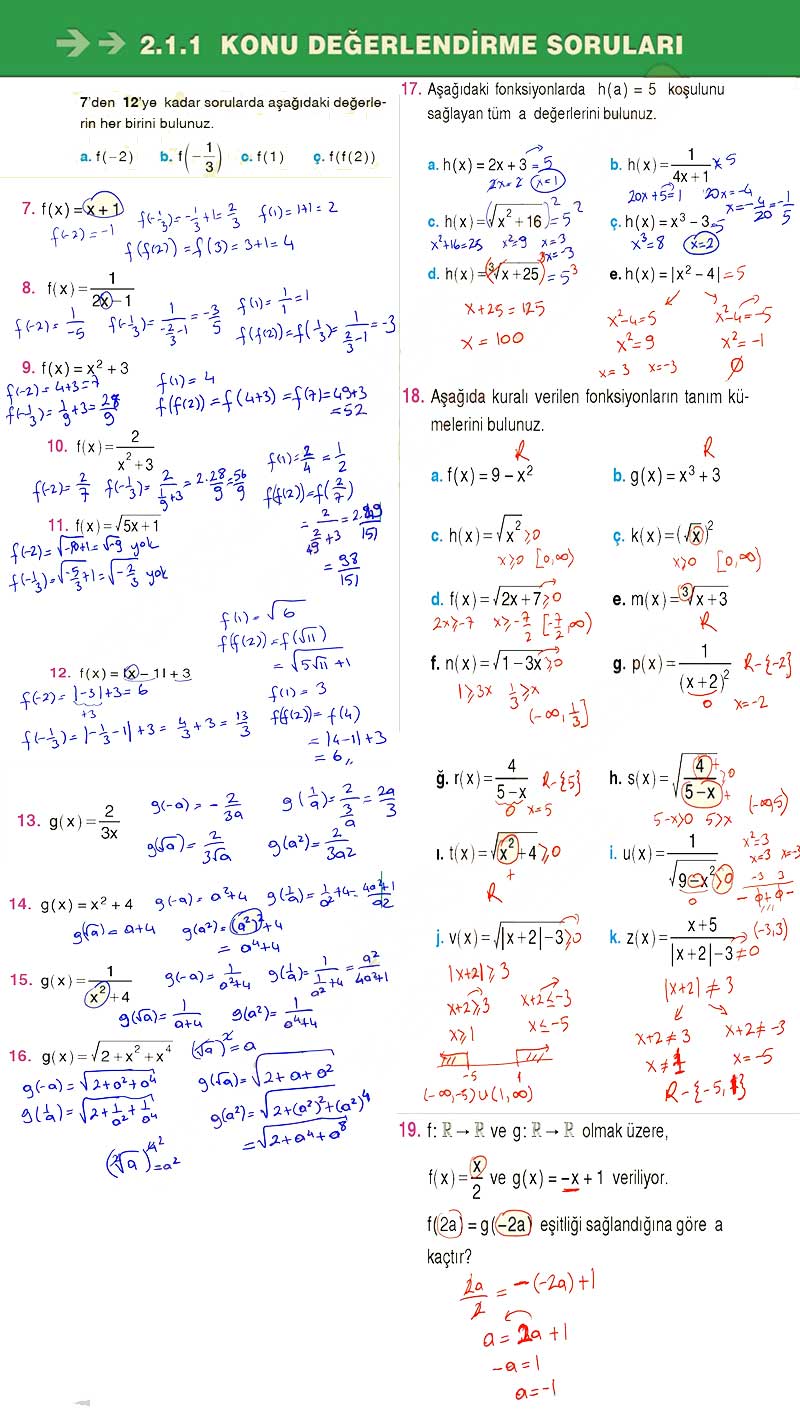 2.1.1 KONU DEĞERLENDİRME SORULARI
7'den 12'ye kadar sorularda aşağıdaki değerle-
rin her birini bulunuz.
a. f(−2) b. f(−1/3) c. f(1) ç. f(f(2))
7. f(x) = x + 1
f(-2) = -1 f(-1/3) = -1/3 + 1 = 2/3 f(1) = 1+1 = 2
f(f(2)) = f(3) = 3+1 = 4
8. f(x) = 1/(2x−1)
f(-2) = 1/-5 f(-1/3) = 1/(-2/3-1) = -3/5 f(1) = 1/1 = 1
f(f(2)) = f(1/3) = 1/(2/3-1) = -3
9. f(x) = x² + 3
f(-2) = 4+3 = 7 f(1) = 4
f(-1/3) = 1/9+3 = 28/9 f(f(2)) = f(4+3) = f(7) = 49+3
= 52
10. f(x) = 2/(x²+3)
f(-2) = 2/7 f(-1/3) = 2/(1/9+3) = 2.28/9 = 56/9 f(1) = 2/4 = 1/2
f(f(2)) = f(2/7)
= 2/(2/49+3) = 2.49/151
= 98/151
11. f(x) = √(5x+1)
f(-2) = √(-10+1) = √-9 yok
f(-1/3) = √(-5/3+1) = √(-2/3) yok
f(1) = √6
f(f(2)) = f(√11)
= √(5√11+1)
12. f(x) = |x − 1| + 3
f(-2) = |-3|+3 = 6 f(1) = 3
+3
f(-1/3) = |-1/3-1|+3 = 4/3+3 = 13/3 f(f(2)) = f(4)
= |4-1|+3
= 6,,
13. g(x) = 2/3x
g(-a) = -2/3a g(1/a) = 2/(3/a) = 2a/3
g(√a) = 2/3√a g(a²) = 2/3a2
14. g(x) = x² + 4 g(-a) = a²+4 g(1/a) = 1/a²+4 = 4a²+1/a2
g(√a) = a+4 g(a²) = (a²)²+4
= a⁴+4
15. g(x) = 1/(x²+4) g(-a) = 1/(a²+4) g(1/a) = 1/(1/a²+4) = a²/(4a²+1)
g(√a) = 1/(a+4) g(a²) = 1/(a⁴+4)
16. g(x) = √(2 + x² + x⁴) (√a)² = a
g(-a) = √(2+a²+a⁴) g(√a) = √(2+a+a²)
g(1/a) = √(2+1/a²+1/a⁴) g(a²) = √(2+(a²)²+(a²)⁴)
= √(2+a⁴+a⁸)
(²√a)⁴² = a²
17. Aşağıdaki fonksiyonlarda h(a) = 5 koşulunu
sağlayan tüm a değerlerini bulunuz.
a. h(x) = 2x + 3 = 5 b. h(x) = 1/(4x+1) = 5
2x = 2 x = 1 20x+5 = 1 20x = -4 x = -4/20 = -1/5
c. h(x) = (√(x²+16))² = 5² ç. h(x) = x³ − 3 = 5
x²+16 = 25 x² = 9 x = 3 x = -3 x³ = 8 x = 2
d. h(x) = (³√(x+25))³ = 5³ e. h(x) = |x² − 4| = 5
x+25 = 125 x²-4 = 5 x²-4 = -5
x = 100 x² = 9 x² = -1
x = 3 x = -3 Ø
18. Aşağıda kuralı verilen fonksiyonların tanım kü-
melerini bulunuz.
R R
a. f(x) = 9 − x² b. g(x) = x³ + 3
c. h(x) = √x² ≥0 ç. k(x) = (√x)²
x≥0 [0,∞) x≥0 [0,∞)
d. f(x) = √(2x+7) ≥0 e. m(x) = ³√(x+3)
2x≥-7 x≥-7/2 [-7/2,∞) R
f. n(x) = √(1−3x) ≥0 g. p(x) = 1/(x+2)² R-{-2}
1≥3x 1/3≥x 0 x = -2
(-∞,1/3]
ğ. r(x) = 4/(5−x) R-{5} h. s(x) = √(4/(5−x)) + ≥0 +
0 x = 5 5-x>0 5>x (-∞,5)
ı. t(x) = √(x²+4) ≥0 i. u(x) = 1/√(9−x²) >0 x² = 3
+ 0 x = 3 x = -3
R -3 3
- + -
j. v(x) = √(|x+2|−3) ≥0 k. z(x) = (x+5)/(|x+2|−3) ≠0 (-3,3)
|x+2| ≥ 3 |x+2| ≠ 3
x+2≥3 x+2≤-3 x+2≠3 x+2≠-3
x≥1 x≤-5 x≠1 x=-5
-5 1 R-{-5,1}
(-∞,-5)∪(1,∞)
19. f: ℝ → ℝ ve g: ℝ → ℝ olmak üzere,
f(x) = x/2 ve g(x) = −x + 1 veriliyor.
f(2a) = g(−2a) eşitliği sağlandığına göre a
kaçtır?
2a/2 = -(-2a)+1
a = 2a+1
-a = 1
a = -1